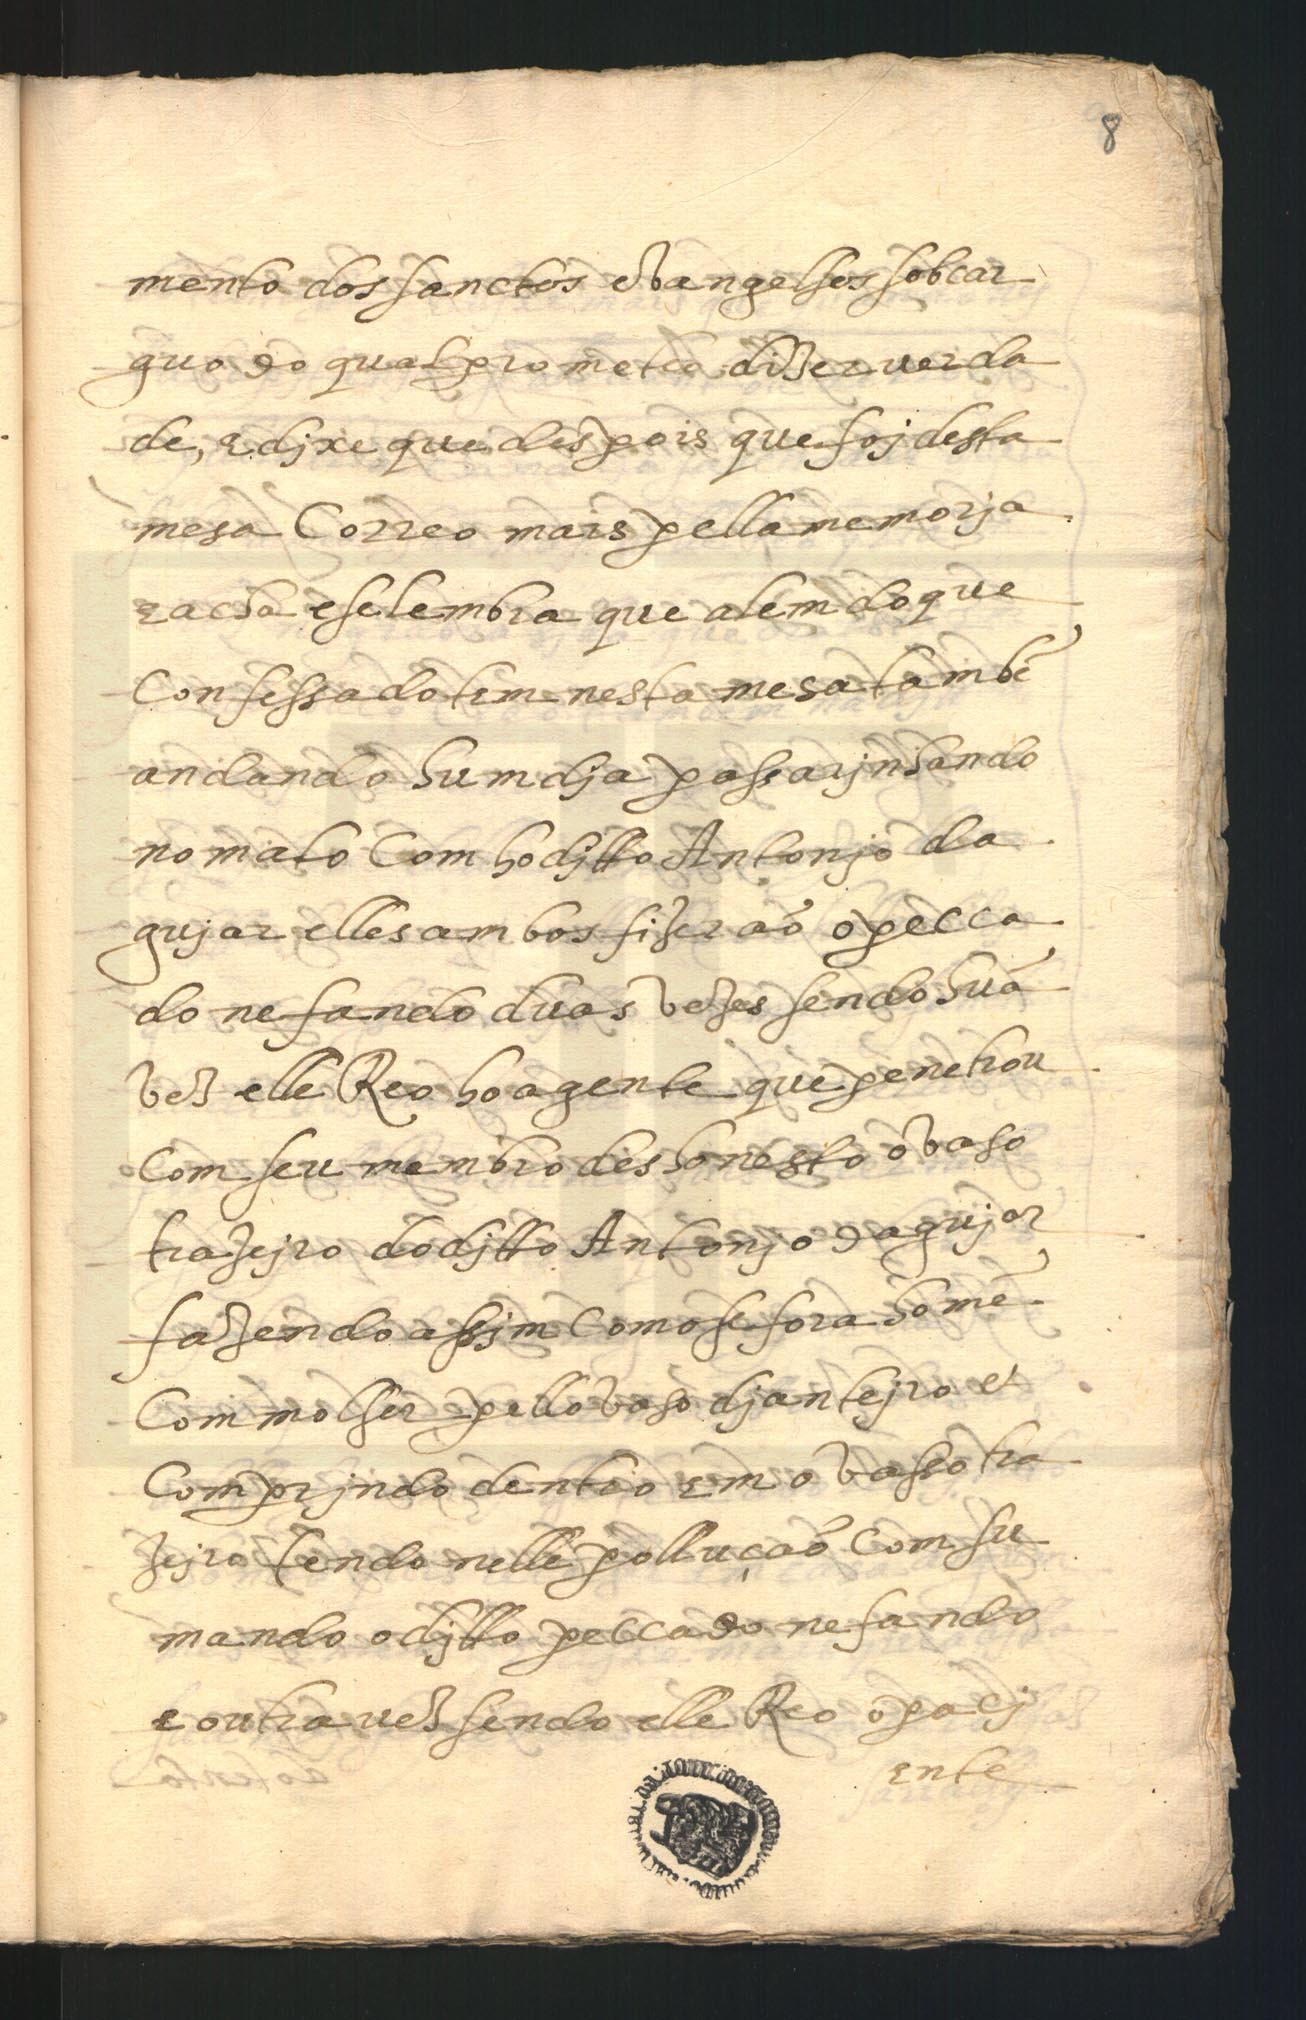 8
mento dos sanctos evangelhos sob car
guo do qual prometeo dizer verda
de, e dixe que despois que foj desta
mesa Correo mais pella memorja
e acha e se lembra que alem do que
Confessado tem nesta mesa tambẽ
andando hum dja passarjnhando
no mato Com ho djtto Antonjo da
gujar elles ambos fizeraõ o pecca
do nefando duas vezes sendo hũa
vez elle Reo ho agente que penetrou
Com seu membro deshonesto o vaso
trazejro do djtto Antonjo dagujar
fazendo assjm Como se fora homẽ
Com molher pello vaso djantejro e
Comprjndo dentro em o vasso tra
zejro tendo nelle polluçaõ Comsu
mando o djtto peccado nefando
e outra vez sendo elle Reo o pacj
ente